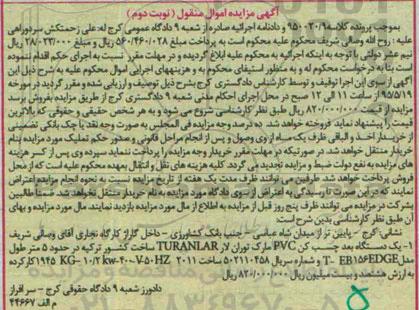 آگهی مزایده اموال منقول (نوبت دوم)
بموجب پرونده کلاسه ۹۵۰۳۰۹۸ و دادنامه اجرائیه صادره از شعبه ۹ دادگاه عمومی کرج له: علی زحمتکش سردوراهی
علیه: روح الله وصالی شریف محکوم علیه محکوم است به پرداخت مبلغ ۵۶۰/۴۶۰/۰۲۸ ریال و مبلغ ۲۸/۰۲۳/۰۰۰ ریال
نیم عشر دولتی با توجه به اینکه اجرائیه به محکوم علیه ابلاغ گردیده و در مهلت مقرر نسبت به اجرای حکم اقدام ننموده
است بنا به درخواست محکوم له و به منظور استیفای محکوم به و هزینه‌های اجرایی اموال محکوم علیه به شرح ذیل این
آگهی از سوی این اجرا توقیف و توسط کارشناس دادگستری کرج بشرح ذیل توصیف و ارزیابی شده و مقرر گردید در مورخه
۹۵/۵/۱۹ از ساعت ۱۱ الی ۱۲ صبح در محل اجرای احکام مدنی شعبه ۹ دادگستری کرج از طریق مزایده بفروش برسد
مزایده از مبلغ ۸۲۰/۰۰۰/۰۰۰ ریال طبق نظر کارشناسی شروع می شود و به هر شخص حقیقی و حقوقی که بالاترین
قیمت را پیشنهاد نماید فروخته خواهد شد. ده درصد وجه مزایده فی المجلس به صورت وجه نقد یا چک بانکی تضمینی
از خریدار اخذ و الباقی ظرف یک ماه از وی وصول و پس از انجام مراحل قانونی و صدور حکم تملیک مورد مزایده بنام
خریدار منتقل خواهد شد. در صورتیکه در مهلت مقرر خریدار وجه مزایده را پرداخت ننماید سپرده وی پس از کسر هزینه
های مزایده به نفع دولت ضبط و مزایده تجدید می گردد. کلیه هزینه های نقل و انتقال بعهده محکوم علیه است که از محل
مزایده پرداخت خواهد شد. طرفین می توانند ظرف مدت یک هفته از تاریخ مزایده نسبت به نحوه انجام مزایده اعتراض
نمایند که در این صورت تا رسیدگی به اعتراض از سوی دادگاه مورد مزایده به نام خریدار منتقل نخواهد شد. ضمنا طالبین
شرکت در مزایده می توانند ظرف پنج روز قبل از مزایده به اطلاع از مال مورد مزایده بازدید نمایند. مال مورد مزایده و بهای
آن طبق نظر کارشناسی بدین شرح است:
نشانی: کرج - پایین تر از میدان شاه عباسی - جنب بانک کشاورزی - داخل گاراژ کارگاه نجاری آقای وصالی شریف
۱- یک دستگاه بعد چسب کن PVC مارک توران لار TURANLAR ساخت کشور ترکیه در حدود ۵ متر طول
مدل T- EB۱۵۶EDGE و شماره سریال ۵۰۲۱۱۰۴۵۸ ساخت ۲۰۱۱ ۱۹۴۵ KG- ۱۰/۲kw-۴۰۰V-۵۰HZ کارکرده
به ارزش هشتصد و بیست میلیون ریال ۸۲۰/۰۰۰/۰۰۰ ریال
دادورز شعبه ۹ دادگاه حقوقی کرج - سرافراز
م الف ۴۴۶۶۷